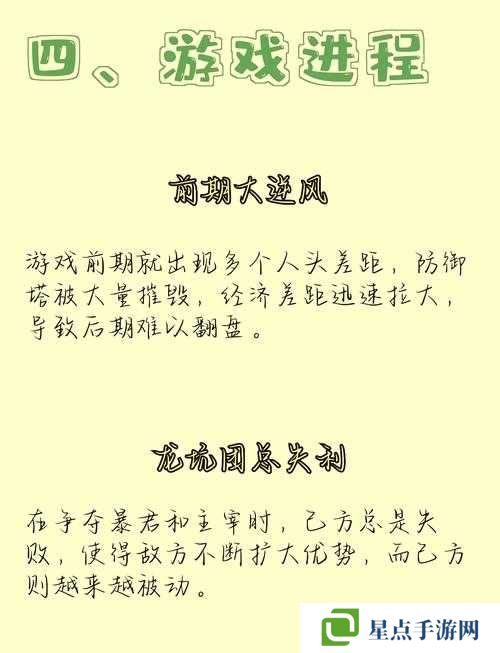 四、游戏进程
前期大逆风
游戏前期就出现多个人头差距，防御
塔被大量摧毁，经济差距迅速拉大，
导致后期难以翻盘。
龙坑团总失利
在争夺暴君和主宰时，己方总是失
败，使得敌方不断扩大优势，而己方
则越来越被动。
星点手游网